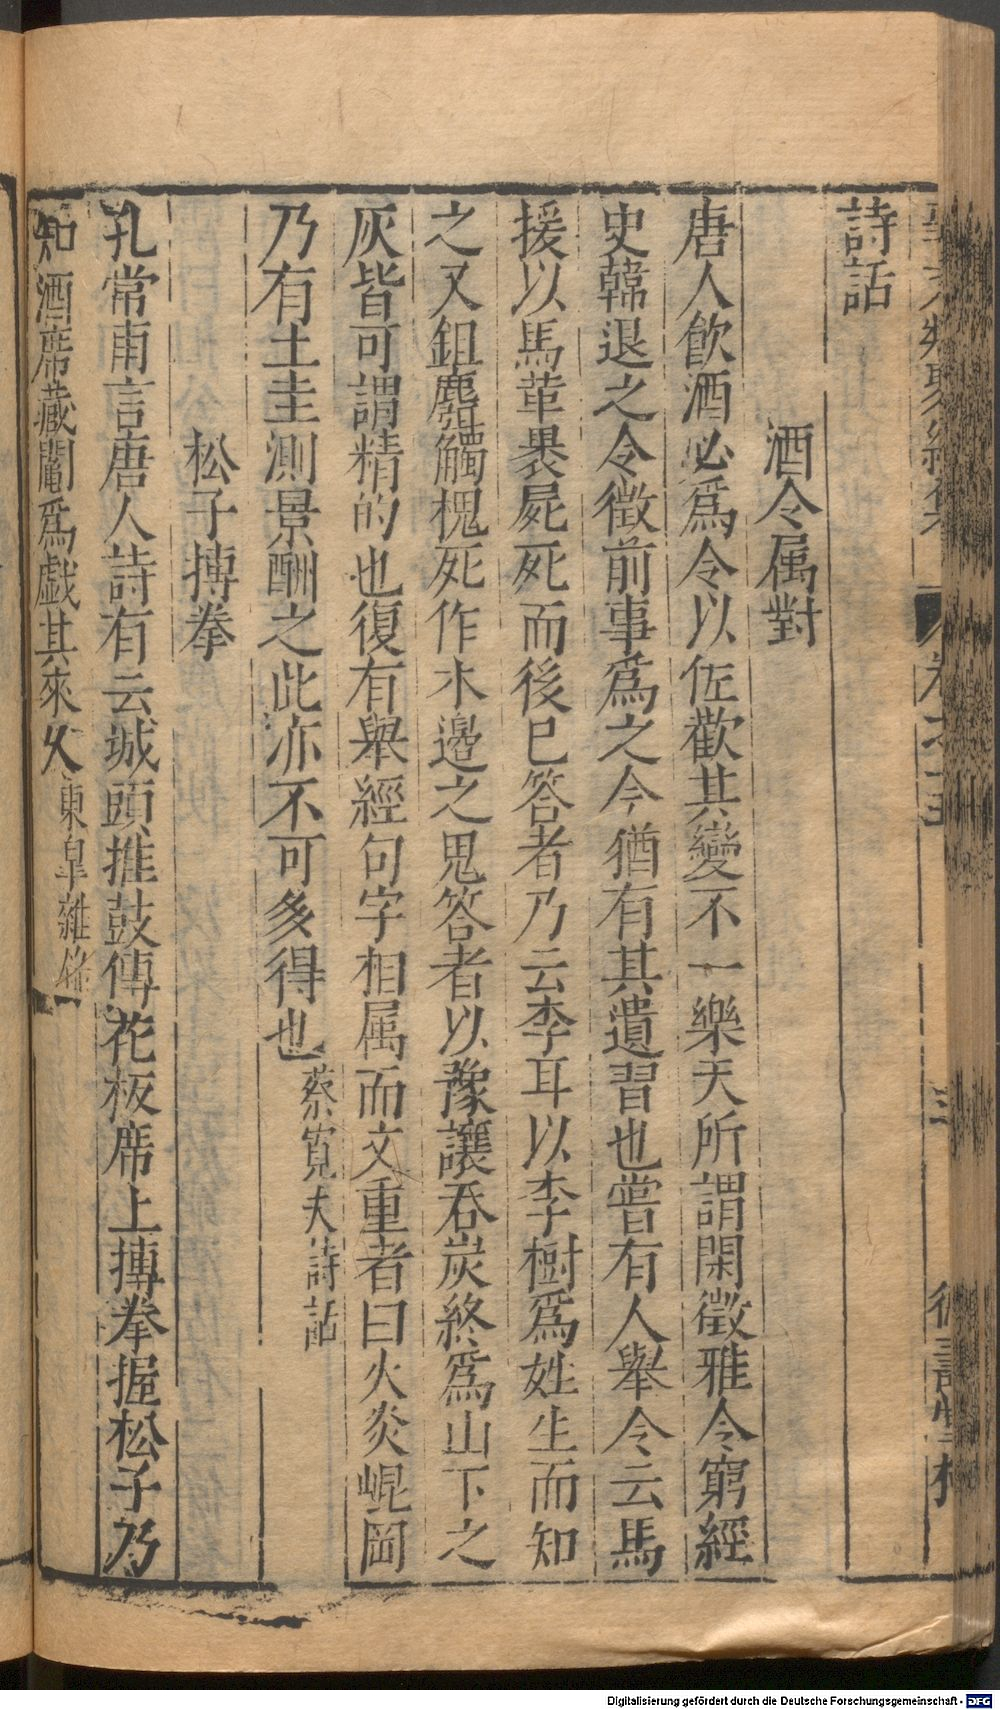 詩話
酒令属對
唐人飲酒必爲令以佐歡其變不一樂天所謂閑徵雅令窮經
史韓退之令徵前事爲之今猶有其遺習也嘗有人舉令云馬
援以馬革裹屍死而後已答者乃云李耳以李樹爲姓生而知
之又鉏麑觸槐死作木邉之鬼答者以豫讓吞炭終爲山下之
灰皆可謂精的也復有舉經句字相属而文重者曰火炎崐岡
乃有土圭測景酬之此亦不可多得也蔡寛夫詩話
松子摶拳
孔常甫言唐人詩有云城頭推鼓傳花板席上摶拳握松子乃
知酒席藏鬮爲戯其來久東臯雜錄
Digitalisierung gefördert durch die Deutsche Forschungsgemeinschaft - DFG